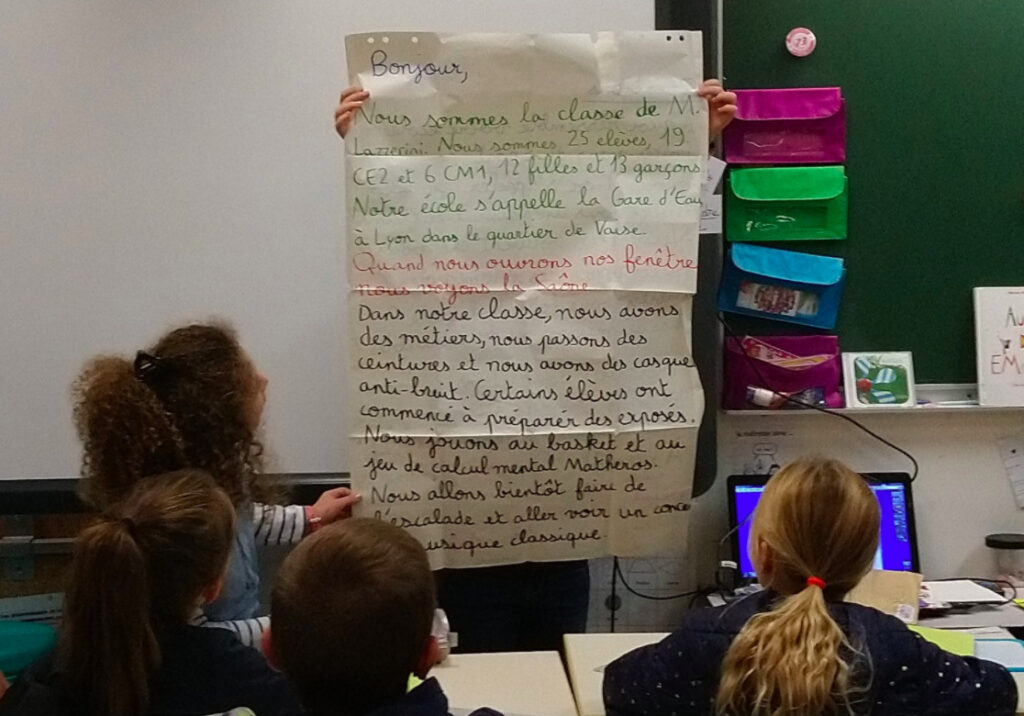 Bonjour,
Nous sommes la classe de M.
Lazzerini. Nous sommes 25 elèves, 19
CE2 et 6 CM1, 12 filles et 13 garçons
Notre école s'appelle la Gare d'Eau
à Lyon dans le quartier de Vaise.
Quand nous ouvrons nos fenêtre
nous voyons la Saône
Dans notre classe, nous avons
des métiers, nous passons des
ceintures et nous avons des casque
anti-bruit. Certains élèves ont
commencé à préparer des exposés.
Nous jouons au basket et au
jeu de calcul mental Matheros.
Nous allons bientôt faire de
l'escalade et aller voir un conce
usique classique.
23